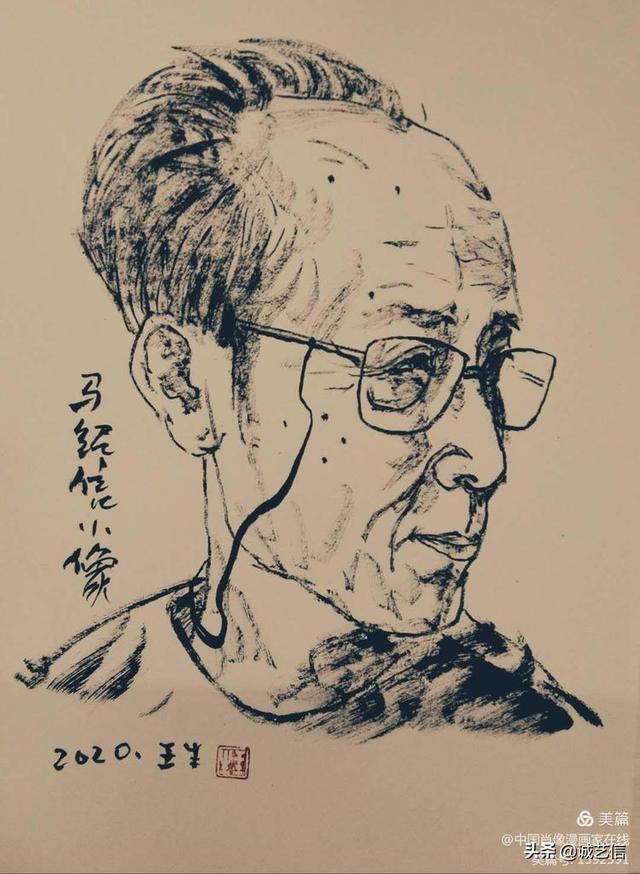 马经信小像
2020.王丰
美篇
@中国肖像漫画家在线
美篇号: 1392591
头条 @诚艺信